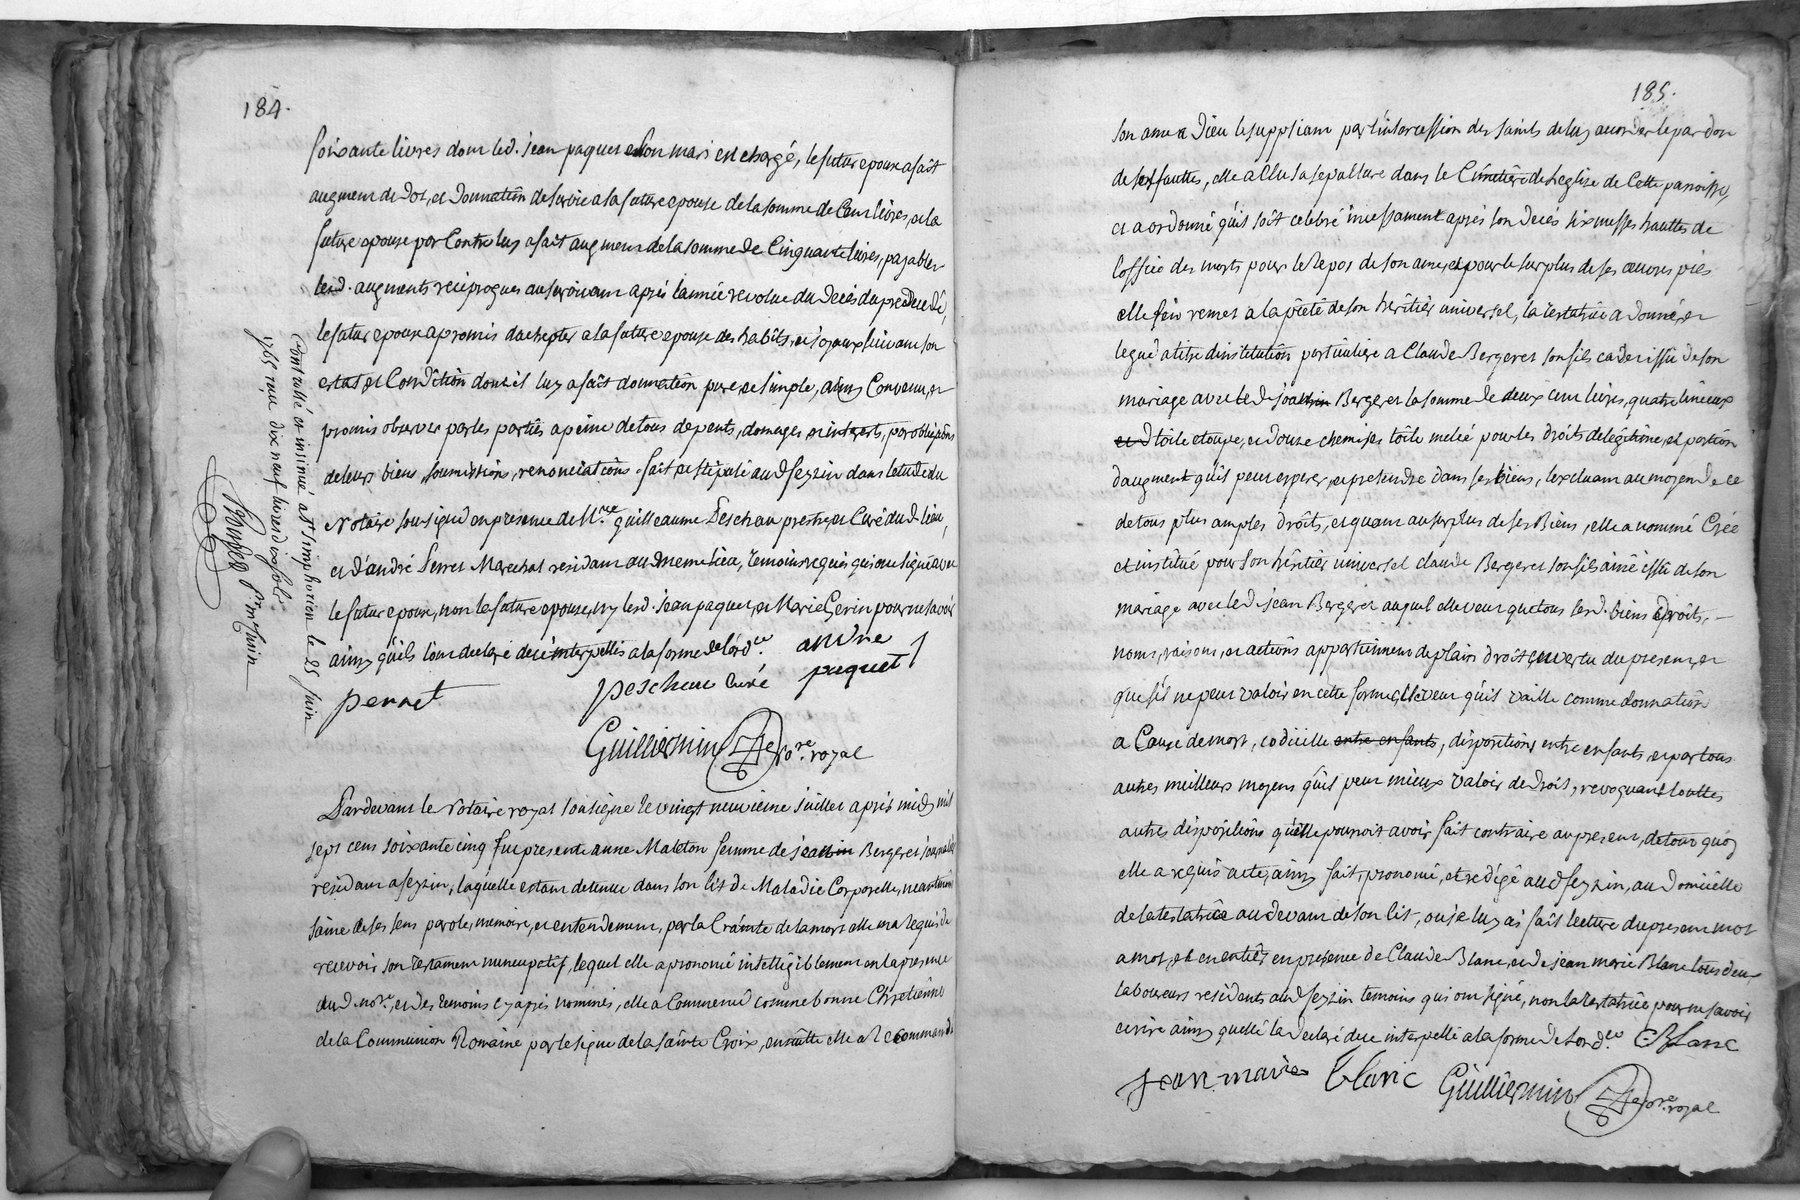 184.
soixante livres dont led. jean paquet et son mari est chargé, le futur epoux a fait
augment de dot, et donnation de survie a la future epouse de la somme de Cent livres, et la
future epouse par Contre luy a fait augment de la somme de Cinquante livres, payables
lesd. augments reciproques au survivant après l'année revolue du decès du predecedé,
le futur epoux a promis d'achepter a la future epouse des habits, et joyaux suivant son
estat et Condition dont il luy a fait donnation pure et simple, ainsy Convenu, et
promis observer par les partiés a peine de tous depents, domages et interests, par obligations
de leurs biens, soumissions, renonciations. fait et stipulé aud feyzin dans l'etude du
Notaire soussigné en presence de Mre. guilleaume Peschau prestre, et Curé dud. lieu,
et d'andré Perret Marechal residant aud meme lieu, temoins requis qui ont signé avec
le futur epoux, non la future epouse, ny lesd. jean paquet, et Marie Gerin pour ne savoir
ainsy qu'ils l'ont declaré de ce interpellés a la forme de l'ord.ce
andre
paquet
perret
peschau curé
Guilliermin Nore. royal
Contrallé et insinué a St. simphorien le 25 juin
1765 reçu dix neuf livres dix sols
Pardevant le Notaire royal soussigné le vingt neuvieme juillet après midy mil
sept cens soixante cinq fut presente anne Maleton femme de jean Bergeret journalier
residant a feyzin, laquelle estant detenue dans son lit de Maladie Corporelle, neantmoins
saine de ses sens parole, memoire, et entendement, par la Crainte de la mort elle m'a requis de
recevoir son Testament nuncupatif, lequel elle a prononcé intelligiblement en la presence
dud nore. et des temoins cy après nommés, elle a Commencé comme bonne Chretienne
de la Communion Romaine par le signe de la sainte Croix, ensuitte elle a Recommandé
185.
son ame a Dieu le suppliant par l'intercession des saints de luy accorder le pardon
de ses fauttes, elle a Elu sa sepulture dans le Cimetière de l'eglise de Cette parroisse,
et a ordonné qu'il soit celebré incessament après son decès six messes hauttes de
l'office des morts pour le Repos de son ame, et pour le surplus de ses œuvres pies
elle s'en remet a la piété de son heritier universel, la testatrice a donné, et
legué a titre d'institution particuliere a Claude Bergeret son fils cadet issu de son
mariage avec led jean Bergeret la somme de deux cent livres, quatre linceux
toile etoupe, et douze chemises toile melée pour les droits de legitime, et portion
d'augment qu'il peut esperer, et pretendre dans ses biens, l'excluant au moyen de ce
de tous plus amples droits, et quant au surplus de ses Biens, elle a nommé Créé
et institué pour son héritier universel claude Bergeret son fils ainé issu de son
mariage avec led jean Bergeret auquel elle veut que tous lesd. biens droits,
noms, raisons, et actions appartiennent de plain droit en vertu du present, et
que s'il ne peut valoir en cette forme, elle veut qu'il vaille comme donnation
a Cause de mort, codicille entre enfants, dispositions entre enfants, et par tous
autres meilleurs moyens qu'il peut mieux valoir de droit, revoquant touttes
autres dispositions qu'elle pourroit avoir fait contraire au present, de tout quoy
elle a requis acte, ainsy fait, prononcé, et redigé aud feyzin, au domicille
de la testatrice au devant de son lit, ou je luy ai fait lecture du present mot
a mot, et en entier en presence de Claude Blanc, et de jean marie Blanc tous deux
laboureurs residents aud feyzin temoins qui ont signé, non la Testatrice pour ne savoir
ecrire ainsy quelle la declaré de ce interpellé a la forme de l'ord.ce C Blanc
jean marie blanc Guilliermin Nore. royal